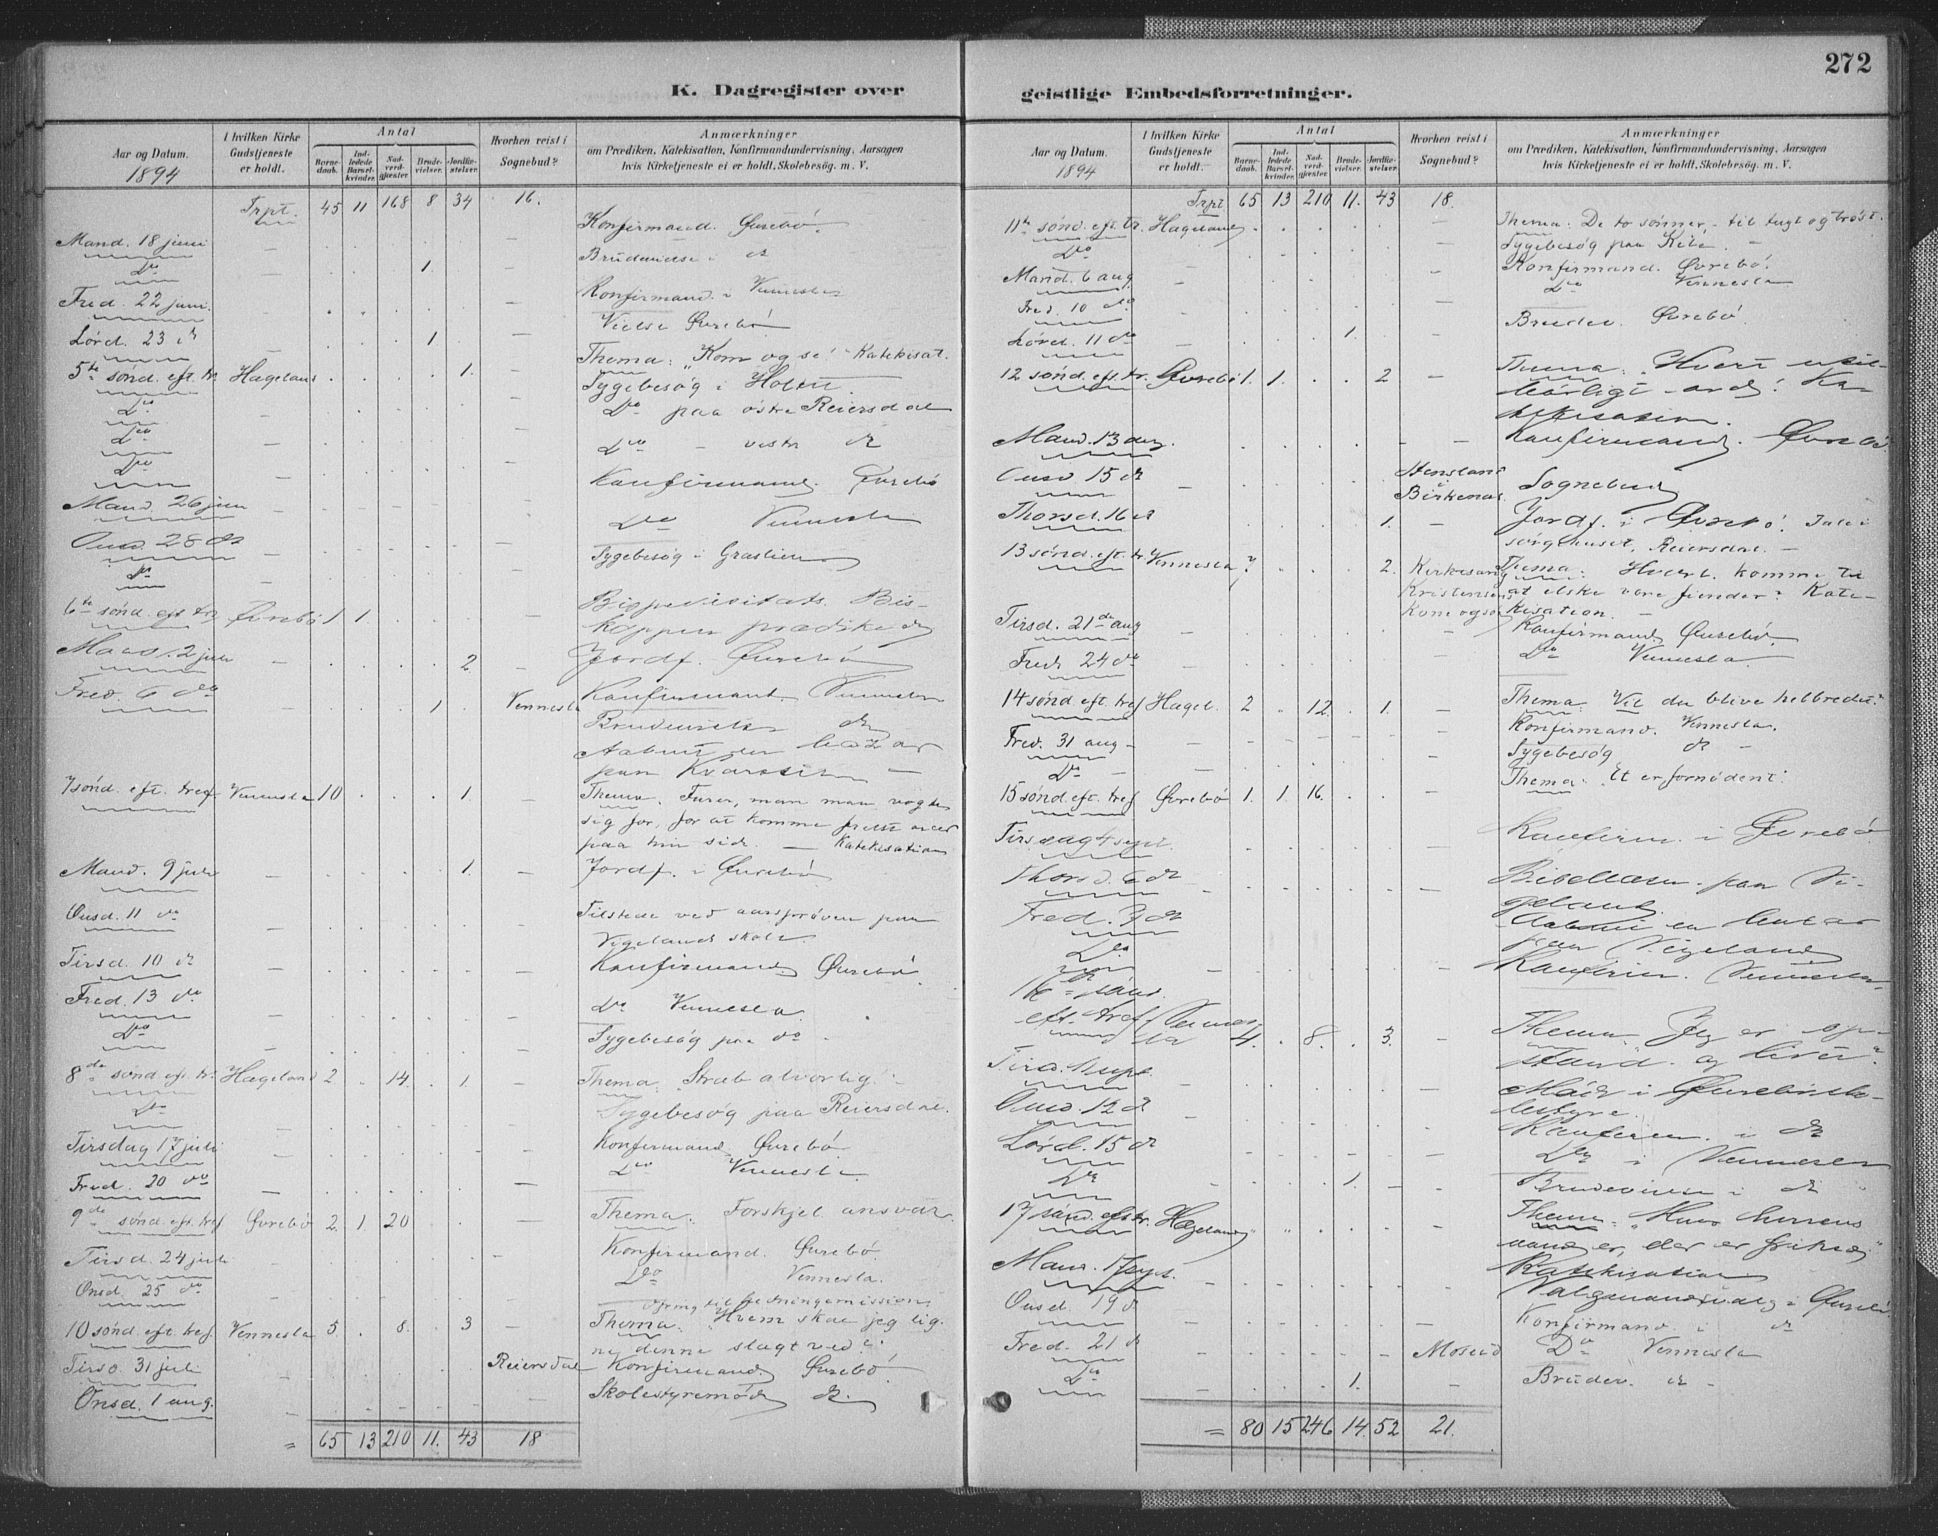 272
K. Dagregister over
geistlige Embedsforretninger.
Aar og Datum.
1894
I hvilken Kirke Gudstjeneste er holdt.
Antal
Barnedaab.
Indledede Barselkvinder.
Nadverdgjæster.
Brudevielser.
Jordfæstelser.
Hvorhen reist i Sognebud?
Anmærkninger
om Prædiken, Katekisation, Konfirmandundervisning, Aarsagen
hvis Kirketjeneste ei er holdt, Skolebesög. m. V.
Trpt. 45 11 168 8 34 16.
Mand. 18 juni - Konfirmand. Øvrebø.
Do - 1. - Brudevielse i do
Fred. 22 juni - Konfirmand. i Vennesla
Lørd. 23 do - 1 - Vielse Øvrebø
5te sønd. eft. tr. Hægeland 1. Thema: "Kom og se". Katekisat.
Do Sygebesøg i Holten
Do - Do paa østre Reiersdal
Do - Do - vestr do
Mand. 26 juni - Konfirmand. Øvrebø
Onsd. 28 do - Do Vennesla
Do - Sygebesøg i Graslien
6te sønd. eft. tr. Øvrebø 1 1 Bispevisitats. Biskoppen prædikede
Mand. 2 juli - 2 - Jordf. Øvrebø
Fred. 6 do - 1 Vennesla Konfirmand. Vennesla
Brudevielse do
Aabnet en bazar
paa Kvarstein -
7 sønd. eft. tref. Vennesla 10 1. Thema:
sig for, for at komme frelst over
paa hin side. - Katekisation
Mand. 9 juli - 1. - Jordf. i Øvrebø
Onsd. 11 do - Tilstede ved aarsprøven paa
Vigelands skole.
Tirsd. 10 do - Konfirmand. Øvrebø
Fred. 13 do - Do Vennesla
Do - Sygebesøg paa do
8de sønd. eft. tr. Hægeland 2 14. 1. Thema: Stræb alvorlig! -
Do Sygebesøg paa Reiersdal.
Tirsdag 17 juli Konfirmand. Øvrebø
Fred. 20 do - Do Vennesla
9de sønd. eft. tref. Øvrebø 2. 1 20 - Thema: Forskjel. ansvar.
Tirsd. 24 juli - Konfirmand. Øvrebø
Onsd. 25 do - Do Vennesla.
10 sønd. eft. tref. Vennesla 5. 8. 3 - Thema: "Hvem skal jeg ligne
denne slægt ved?"
Tirsd. 31 juli - Reiersdal Konfirmand. Øvrebø
Onsd. 1 aug. - Skolestyremøde do.
= 65 13 210 11. 43 18
Aar og Datum.
1894
I hvilken Kirke Gudstjeneste er holdt.
Antal
Barnedaab.
Indledede Barselkvinder.
Nadverdgjæster.
Brudevielser.
Jordfæstelser.
Hvorhen reist i Sognebud?
Anmærkninger
om Prædiken, Katekisation, Konfirmandundervisning, Aarsagen
hvis Kirketjeneste ei er holdt, Skolebesög. m. V.
Trpt 65 13 210 11. 43 18.
11te sønd. eft. tr. Hægeland - Thema: De to sønner, - til tugt og trøst.
Do - Sygebesøg paa -
Mand. 6 aug - Konfirmand. Øvrebø.
Fred. 10 do Do Vennesla
Lørd. 11 do 1. - Brudev. Øvrebø
12 sønd. eft. tr. Øvrebø 1. 1. 2 - Thema: "Hvert utilbørligt
ord". Katekisation.
Mand. 13 do - Konfirmand. Øvrebø.
Onsd 15 do - Birkenæs. Sognebud
Thorsd. 16 do 1. - Jordf. i Øvrebø. Tale i
sørgehuset, Reiersdal. -
13 sønd. eft. tr. Vennesla 7 2. Thema: Hvorl. komme til
at elske vore fiender? Katekisation -
Kone ogsaa
Tirsd. 21de aug - Konfirmand. Øvrebø
Fred. 24 do - Do Vennesla
14 sønd. eft. tref Hægel. 2 12. 1. - Thema: Vil du blive helbredet?
Fred. 31 aug - Konfirmand. Vennesla.
Do - Sygebesøg do -
15 sønd. eft. tref Øvrebø 1. 1. 16. Thema: "Et er fornødent".
Tirsdag 4 sept. Konfirm. i Øvrebø
Thorsd. 6 do - Bibellæsn. paa Vigeland
Fred. 7 do Aabnet en bazar
paa Vigeland
Do - Konfirm. Vennesla
16de sønd.
eft. tref. Vennesla 4. 8. 3. - Thema: Jeg er opstand.
og livet".
Tirsd. 11 sept. Møde i Øvrebø
Onsd. 12 do - Konfirm. i do
Lørd. 15 do - Do i Vennesla
Do - 1. - Brudevielse i do
17 sønd. eft. tr. Hægeland - Thema: "Hvor herrens
aand er, der er frihed".
Katekisation
Mand. 17 sept. - Valgmandsvalg i Øvrebø
Onsd. 19 do - Konfirmand. i do
Fred. 21 do - Moseid Do Vennesla
Do - 1. - Brudev. do -
= 80 15 246 14. 52 21.